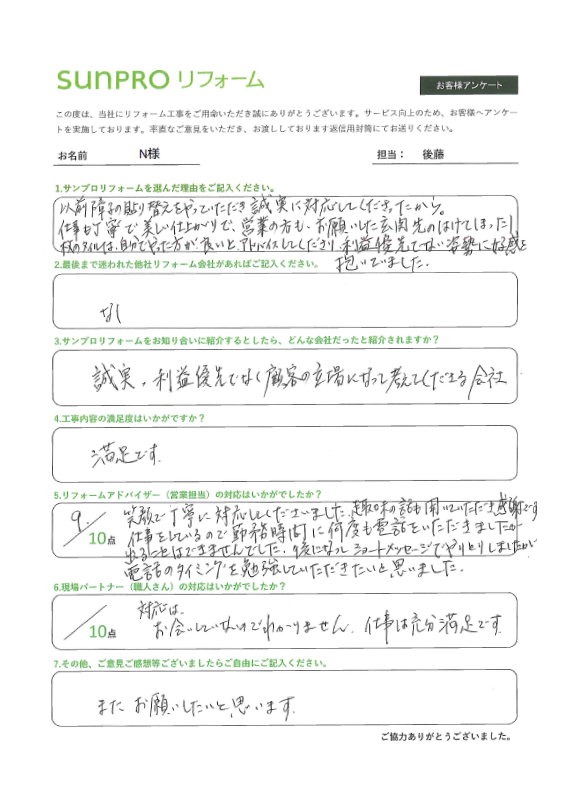 SUNPRO リフォーム
お客様アンケート
この度は、当社にリフォーム工事をご用命いただき誠にありがとうございます。サービス向上のため、お客様へアンケー
トを実施しております。率直なご意見をいただき、お渡ししております返信用封筒にてお送りください。
お名前 N様 担当： 後藤
1.サンプロリフォームを選んだ理由をご記入ください。
以前障子の貼り替えをやっていただき誠実に対応してくださったから。
仕事も丁寧で美しい仕上がりで、営業の方も、お願いした玄関先のはげてしまった1
枚のタイルは、自分でやった方が良いとアドバイスしてくださり、利益優先でない姿勢に好感を
抱いていました。
2.最後まで迷われた他社リフォーム会社があればご記入ください。
なし
3.サンプロリフォームをお知り合いに紹介するとしたら、どんな会社だったと紹介されますか？
誠実、利益優先でなく顧客の立場になって考えてくださる会社
4.工事内容の満足度はいかがですか？
満足です。
5.リフォームアドバイザー（営業担当）の対応はいかがでしたか？
9／10点
笑顔で丁寧に対応してくださいました。趣味の話も聞いていただき感謝です
仕事をしているので勤務時間に何度も電話をいただきましたが
出ることはできませんでした。後になってショートメッセージでやりとりしましたが
電話のタイミングを勉強していただきたいと思いました。
6.現場パートナー（職人さん）の対応はいかがでしたか？
／10点
対応は、
お会いしていないのでわかりません。仕事は充分満足です。
7.その他、ご意見ご感想等ございましたらご自由にご記入ください。
またお願いしたいと思います。
ご協力ありがとうございました。